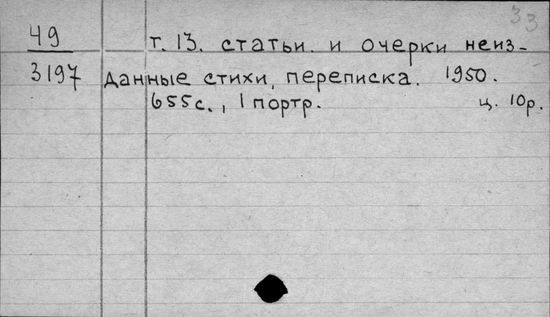 33
49 т. 13. статьи. и очерки неиз-
3197 данные стихи, переписка. 1950.
655с., 1 портр. ц. 10р.